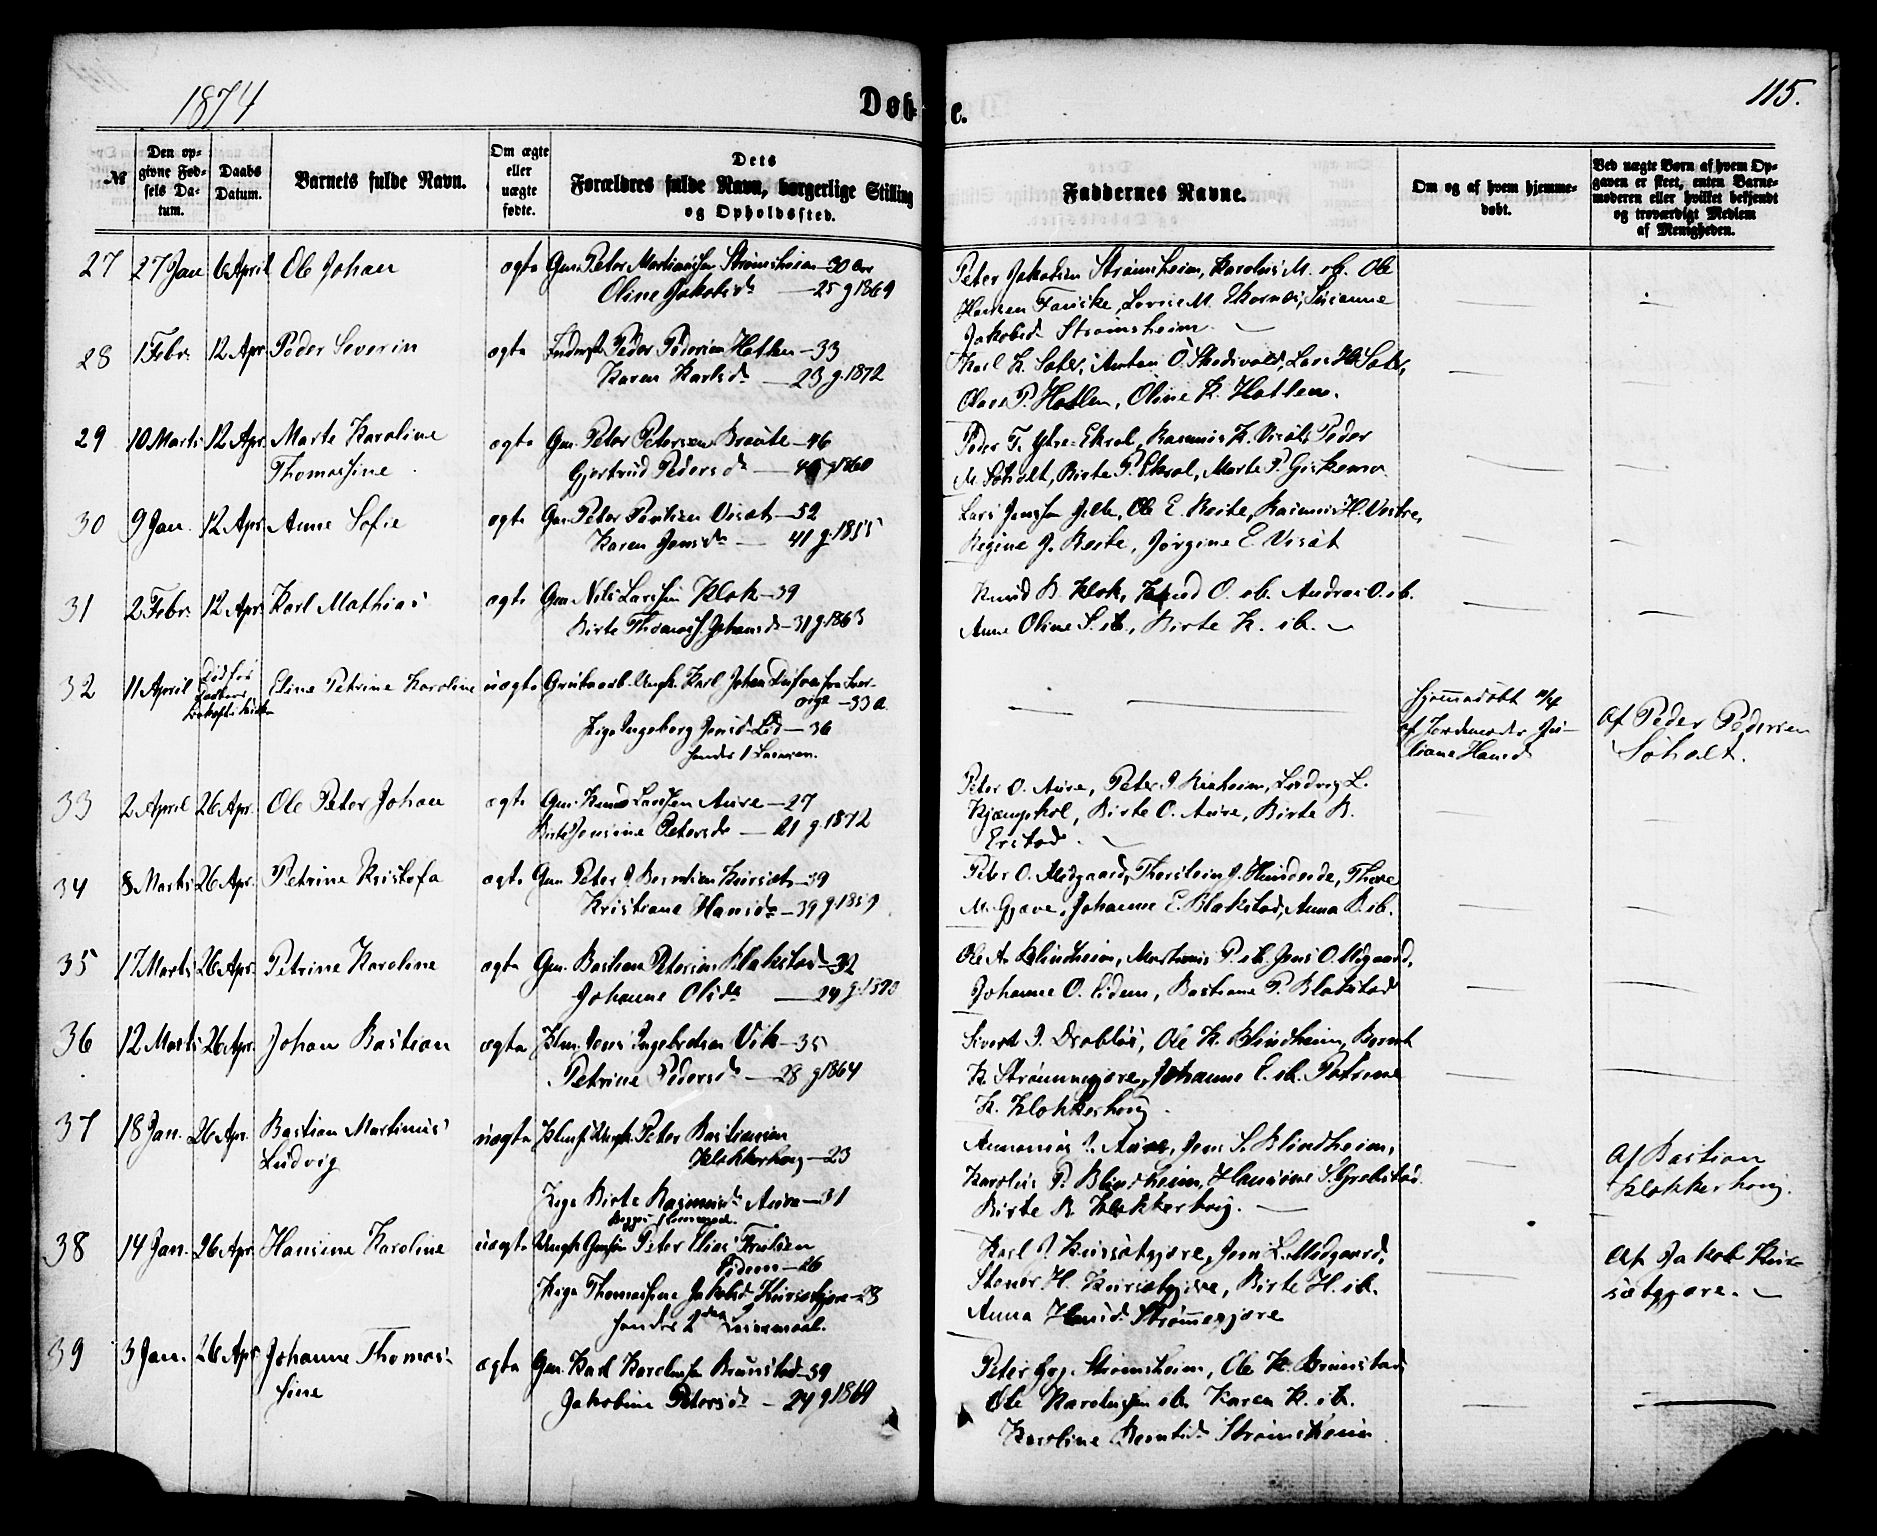 1874
Døb-
te.
115.
№
Den op-
givne Fød-
sels Da-
tum.
Daabs
Datum.
Barnets fulde Navn.
Om ægte
eller
uægte
fødte.
Dets
Forældres fulde Navn, borgerlige Stilling
og Opholdssted.
Faddernes Navne.
Om og af hvem hjemme-
døbt.
Ved uægte Børn af hvem Op-
gaven er skeet, enten Barne-
moderen eller hvilket bekjendt
og troværdigt Medlem
af Menigheden.
27 27 Jan 6 April Ole Johan ægte Gm. Peter Martinussen Strømsheim - 30 Aar
Oline Jakobsd. - 25 g 1869
Peter Jakobsen Strømsheim, Karolus M. ib. Ole
Hansen Fauske, Lovise M. Ekornæs, Susanne
Jakobsd. Strømsheim.
28 1 Febr. 12 Apr Peder Severin ægte Inderst Peder Pedersen Hatlen - 33
Karen Karlsd. - 23 g. 1872
Karl K. Sæter, Anton O. Skodsvold, Lars K. Sæter,
P. Hatlen, Oline K. Hatlen.
29 10 Marts 12 Apr. Marte Karoline ægte Gm. Peter Petersen Braute - 46
Thomassine
Gjertrud Pedersd. - g 1860
Peder T. Ytre-Ekrol, Rasmus K. Visæt, Peder
M. Søholt, Birte P. Ekrol, Marte P. Giskemo
30 9 Jan. 12 Apr. Anne Sofie ægte Gm. Peter Poulsen Visæt - 52
Karen Jensd. - 41 g. 1855
Lars Jenssen Jelle, Ole E. Reite, Rasmus H. Vestre,
Regine J. Reite, Jørgine E. Visæt
31 2 Febr. 12 Apr. Karl Mathias ægte Gm. Nils Larssen Klok - 39
Birte Thomasf. Johansd. - 31 g. 1863
Knud B. Klok, Knud O. ib. Andreas O. ib.
Anne Oline S. ib., Birte K. ib.
32 11 April Død før Eline Petrine Karoline uægte Grubearb. Ungk. Karl Johan fra Sver-
rige - 33 a
Pige Ingeborg Jensd. Lid - 36
hendes 1 Leierm.
hjemmedøbt 11/4
af Jordemoder Ju-
liane Hansd.
Af Peder Pedersen
Søholt.
33 2 April 26 Apr. Ole Peter Johan ægte Gm. Knud Larssen Aure - 27
Birte Jensine Petersd. - 21 g. 1872
Peter O. Aure, Peter J. Vikeheim, Lodvig L.
Kjæmphol, Birte O. Aure, Birte K.
Erstad.
34 8 Marts 26 Apr. Petrine Kristofa ægte Gm. Peter J. Berntsen Kursæt - 39
Kristiane Hansd. - 39 g 1859
Peter O. Midgaard, Thorstein J. Hundeide, Thore
M. Gjøve, Johanne E. Blakstad, Anna B. ib.
35 17 Marts 26 Apr. Petrine Karoline ægte Gm. Bastian Petersen Blakstad - 32
Johanne Olsd. - 24 g. 1870
Ole A. Blindheim, Martinus P. ib. Jens O. Migaard,
Johanne O. Eidem, Bastiane P. Blakstad
36 12 Marts 26 Apr. Johan Bastian ægte Hm. Jens Ingebretsen Vik - 35
Petrine Pedersd. - 28 g 1864
Sivert J. Drabløs, Ole K. Blindheim, Bernt
K. Strømmegjære, Johanne E. ib. Petrine
K. Klokkerhoug.
37 18 Jan. 26 Apr. Bastian Martinus uægte Ungk. Peter Bastiansen
Ludvig
Klokkerhoug - 23
Pige Birte Rasmusd. Aure - 31
Begges 1 Leiermaal.
J. Aure, Jens S. Blindheim,
Karolus P. Blindheim, Hansine S. Grebstad
Birte B. Klokkerhoug.
Af Bastian
Klokkerhoug.
38 14 Jan. 26 Apr. Hansine Karoline uægte Ungk. Peter Elias
Eidem - 26
Pige Thomassine Jakobsd. Kursætgjære - 23
hendes 2det Leiermaal.
Karl J. Kursætgjære, Jens L. Midgaard,
Stener H. Kursætgjære, Birte H. ib.
Anna Hansd. Strømmegjære
Af Jakob Kur-
sætgjære.
39 3 Jan. 26 Apr Johanne Thomas- ægte Gm. Karl Karolussen Brunstad - 39
sine
Jakobine Petersd. - 24 g 1869
Peter Strømsheim, Ole K. Brunstad
Ole Karolussen ib. Karen K. ib.
Karoline Berntsd. Strømsheim